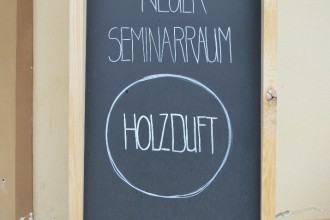 NEUER
SEMINARRAUM
HOLZDUFT